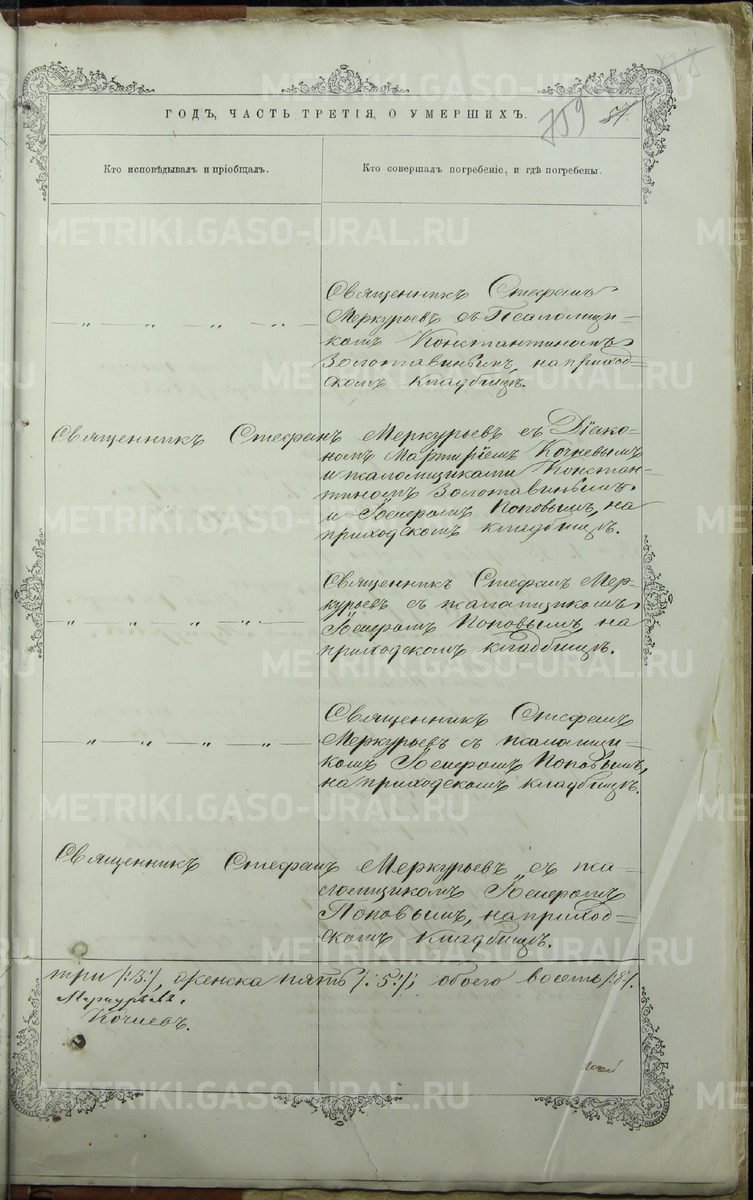 759 54. 118
ГОДЪ, ЧАСТЬ ТРЕТІЯ, О УМЕРШИХЪ.
Кто исповѣдывалъ и пріобщалъ.
Кто совершалъ погребеніе, и гдѣ погребены.
Священникъ Стефанъ
— „ — „ — „ — „ — Меркурьевъ съ Псаломщи-
комъ Константиномъ
Золотавинымъ, на приход-
скомъ кладбищѣ.
Священникъ Стефанъ Меркурьевъ съ Діако-
номъ Мартиріемъ Кочневымъ
и псаломщиками Констан-
тиномъ Золотавинымъ
и Поповымъ, на
приходскомъ кладбищѣ.
Священникъ Стефанъ Мер-
курьевъ съ псаломщикомъ
— „ — „ — „ — „ — Поповымъ, на
приходскомъ кладбищѣ.
Священникъ Стефанъ
— „ — „ — „ — „ — Меркурьевъ съ псаломщи-
комъ Поповымъ,
на приходскомъ кладбищѣ.
Священникъ Стефанъ Меркурьевъ съ пса-
ломщикомъ
Поповымъ, на приход-
скомъ кладбищѣ.
три /:3:/, женска пять /:5:/; обоего восемь /:8:/.
Меркурьевъ.
Кочневъ.
METRIKI.GASO-URAL.RU